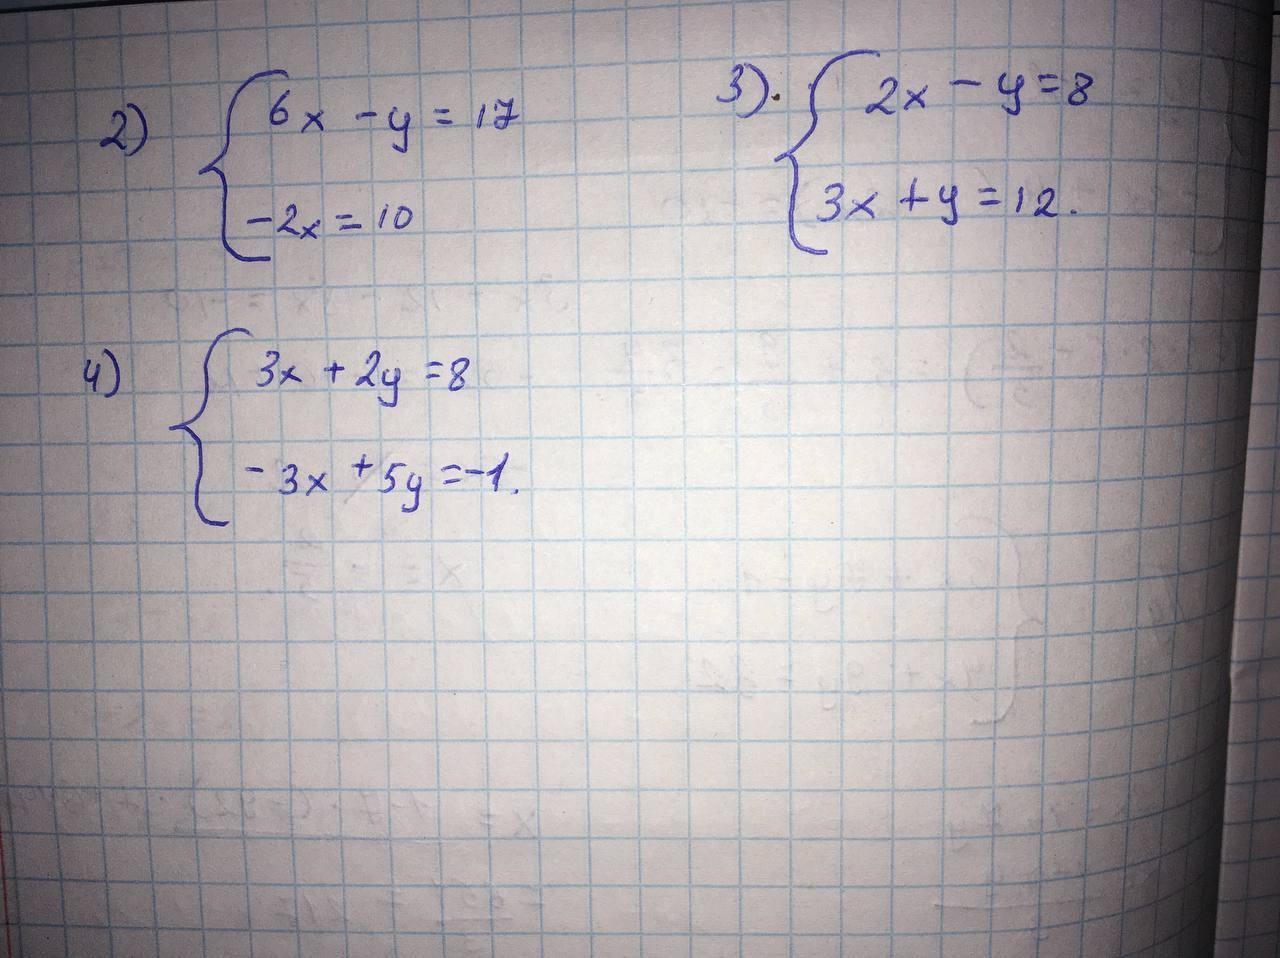 2) { 6x - y = 17
-2x = 10
3). { 2x - y = 8
3x + y = 12.
4) { 3x + 2y = 8
-3x + 5y = -1.